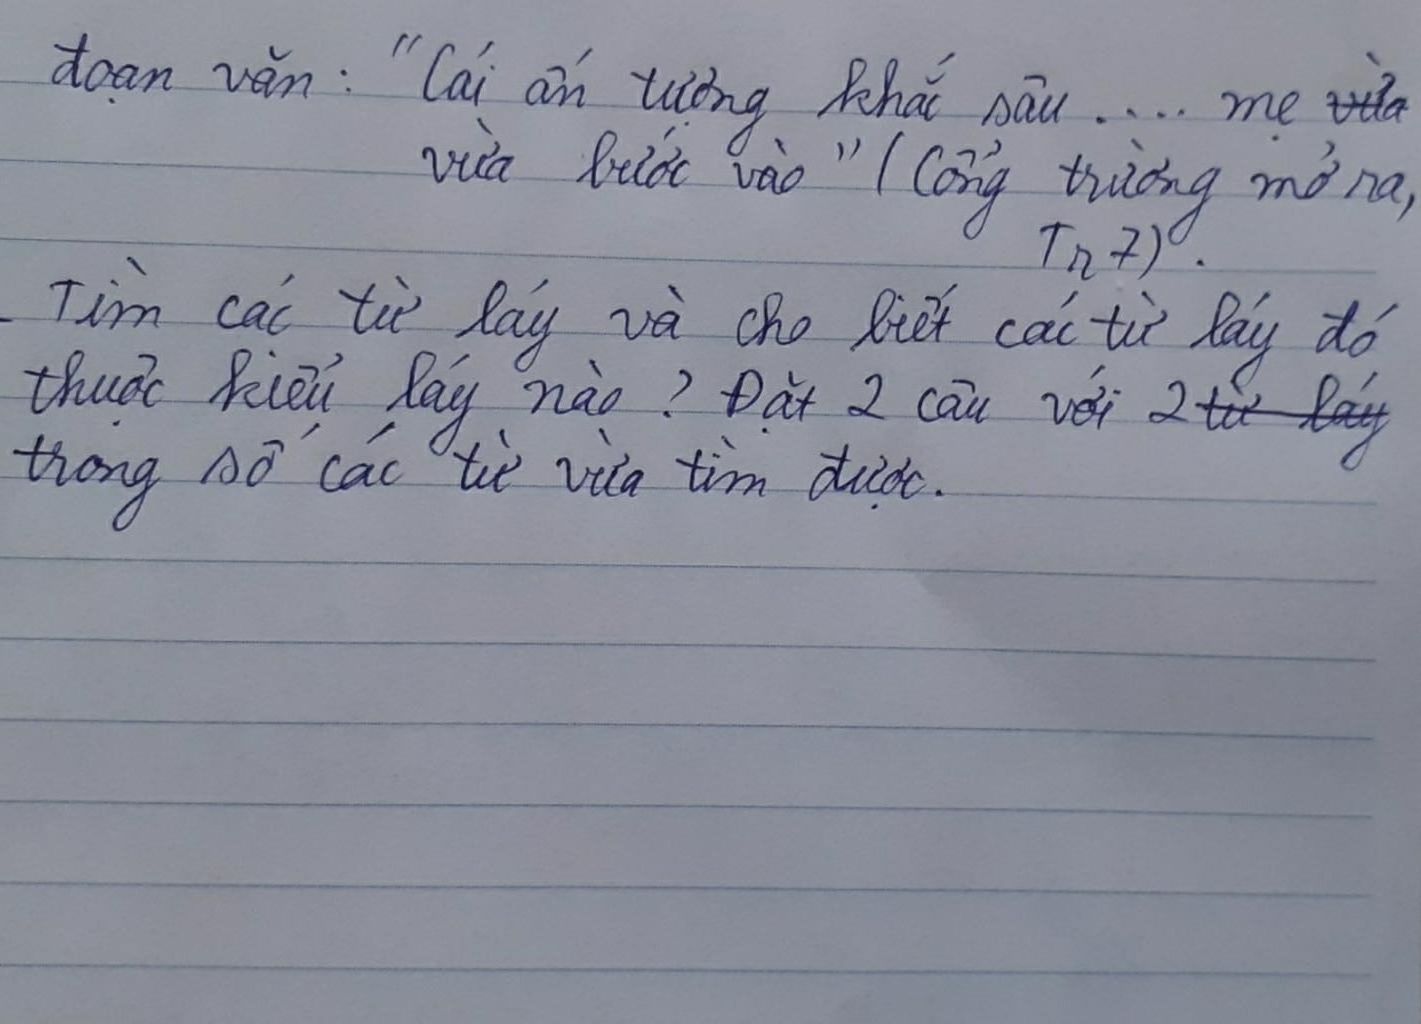 đoạn văn: "Cái ấn tượng khắc sâu .... mẹ vừa
vừa bước vào" (Cổng trường mở ra,
Tr 7).
- Tìm các từ láy và cho biết các từ láy đó
thuộc kiểu láy nào? Đặt 2 câu với 2 từ láy
trong số các từ vừa tìm được.